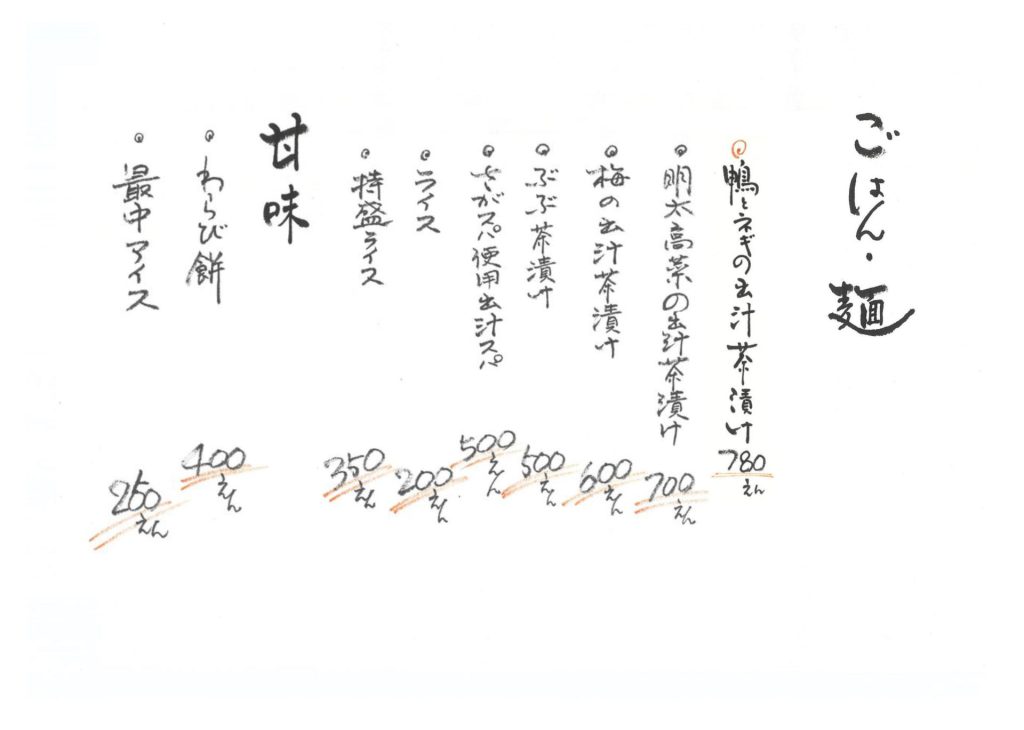 ごはん・麺
鴨とネギの出汁茶漬け 780えん
明太高菜の出汁茶漬け 700えん
梅の出汁茶漬け 600えん
ぶぶ茶漬け 500えん
さがスパ使用出汁スパ 500えん
ライス 200えん
特盛ライス 350えん
甘味
わらび餅 400えん
最中アイス 250えん